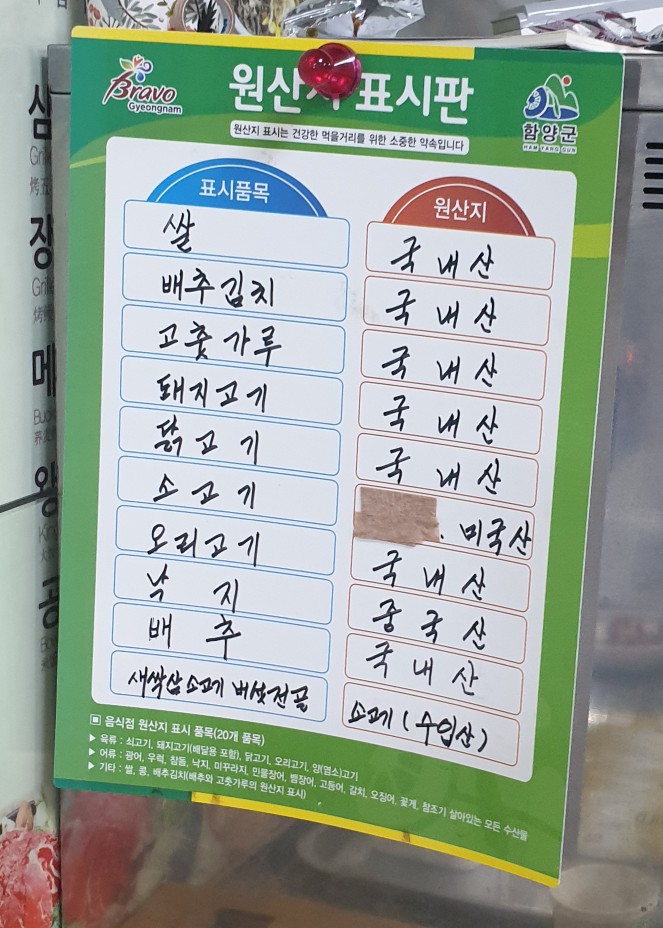 Bravo
Gyeongnam
원산지 표시판
함양군
HAM YANG GUN
원산지 표시는 건강한 먹을거리를 위한 소중한 약속입니다
표시품목 원산지
쌀 국내산
배추김치 국내산
고춧가루 국내산
돼지고기 국내산
닭고기 국내산
소고기 . 미국산
오리고기 국내산
낙지 중국산
배추 국내산
새싹삼소고기 버섯전골 소고기(수입산)
▣ 음식점 원산지 표시 품목(20개 품목)
▶ 육류 : 쇠고기, 돼지고기(배달용 포함), 닭고기, 오리고기, 양(염소)고기
▶ 어류 : 광어, 우럭, 참돔, 낙지, 미꾸라지, 민물장어, 뱀장어, 고등어, 갈치, 오징어, 꽃게, 참조기 살아있는 모든 수산물
▶ 기타 : 쌀, 콩, 배추김치(배추와 고춧가루의 원산지 표시)